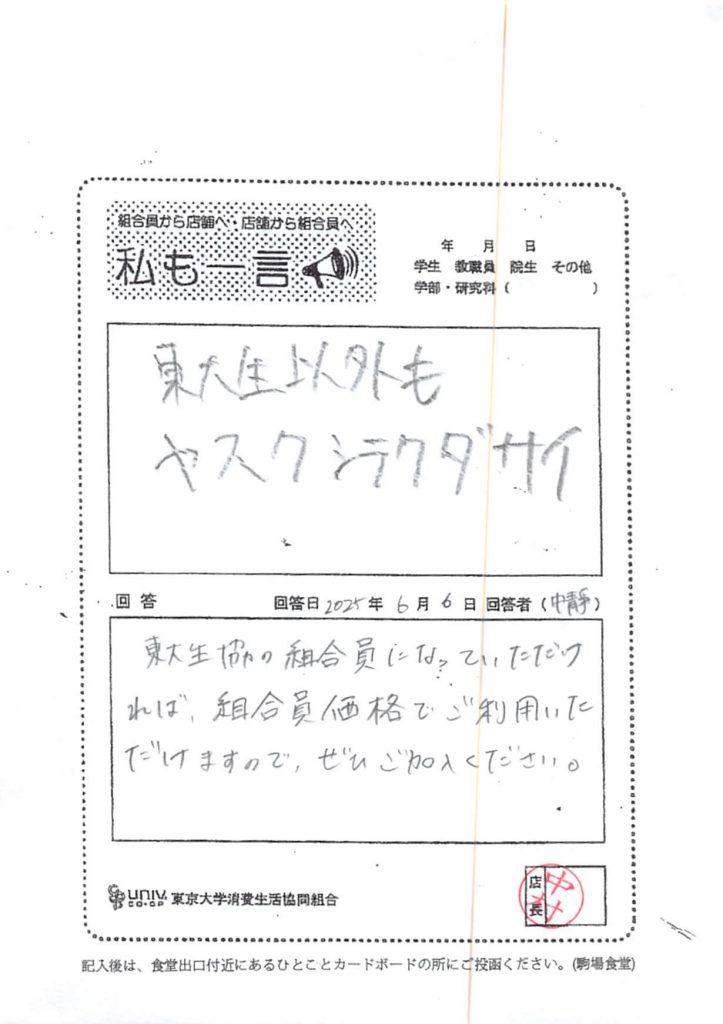 組合員から店舗へ・店舗から組合員へ
私も一言
年 月 日
学生 教職員 院生 その他
学部・研究科（ ）
東大生以外も
ヤスクシテクダサイ
回答 回答日 2025年 6月 6日 回答者（中靜）
東大生協の組合員になっていただけ
れば、組合員価格でご利用いた
だけますので、ぜひご加入ください。
UNIV. CO-OP 東京大学消費生活協同組合
店長 中村
記入後は、食堂出口付近にあるひとことカードボードの所にご投函ください。(駒場食堂)